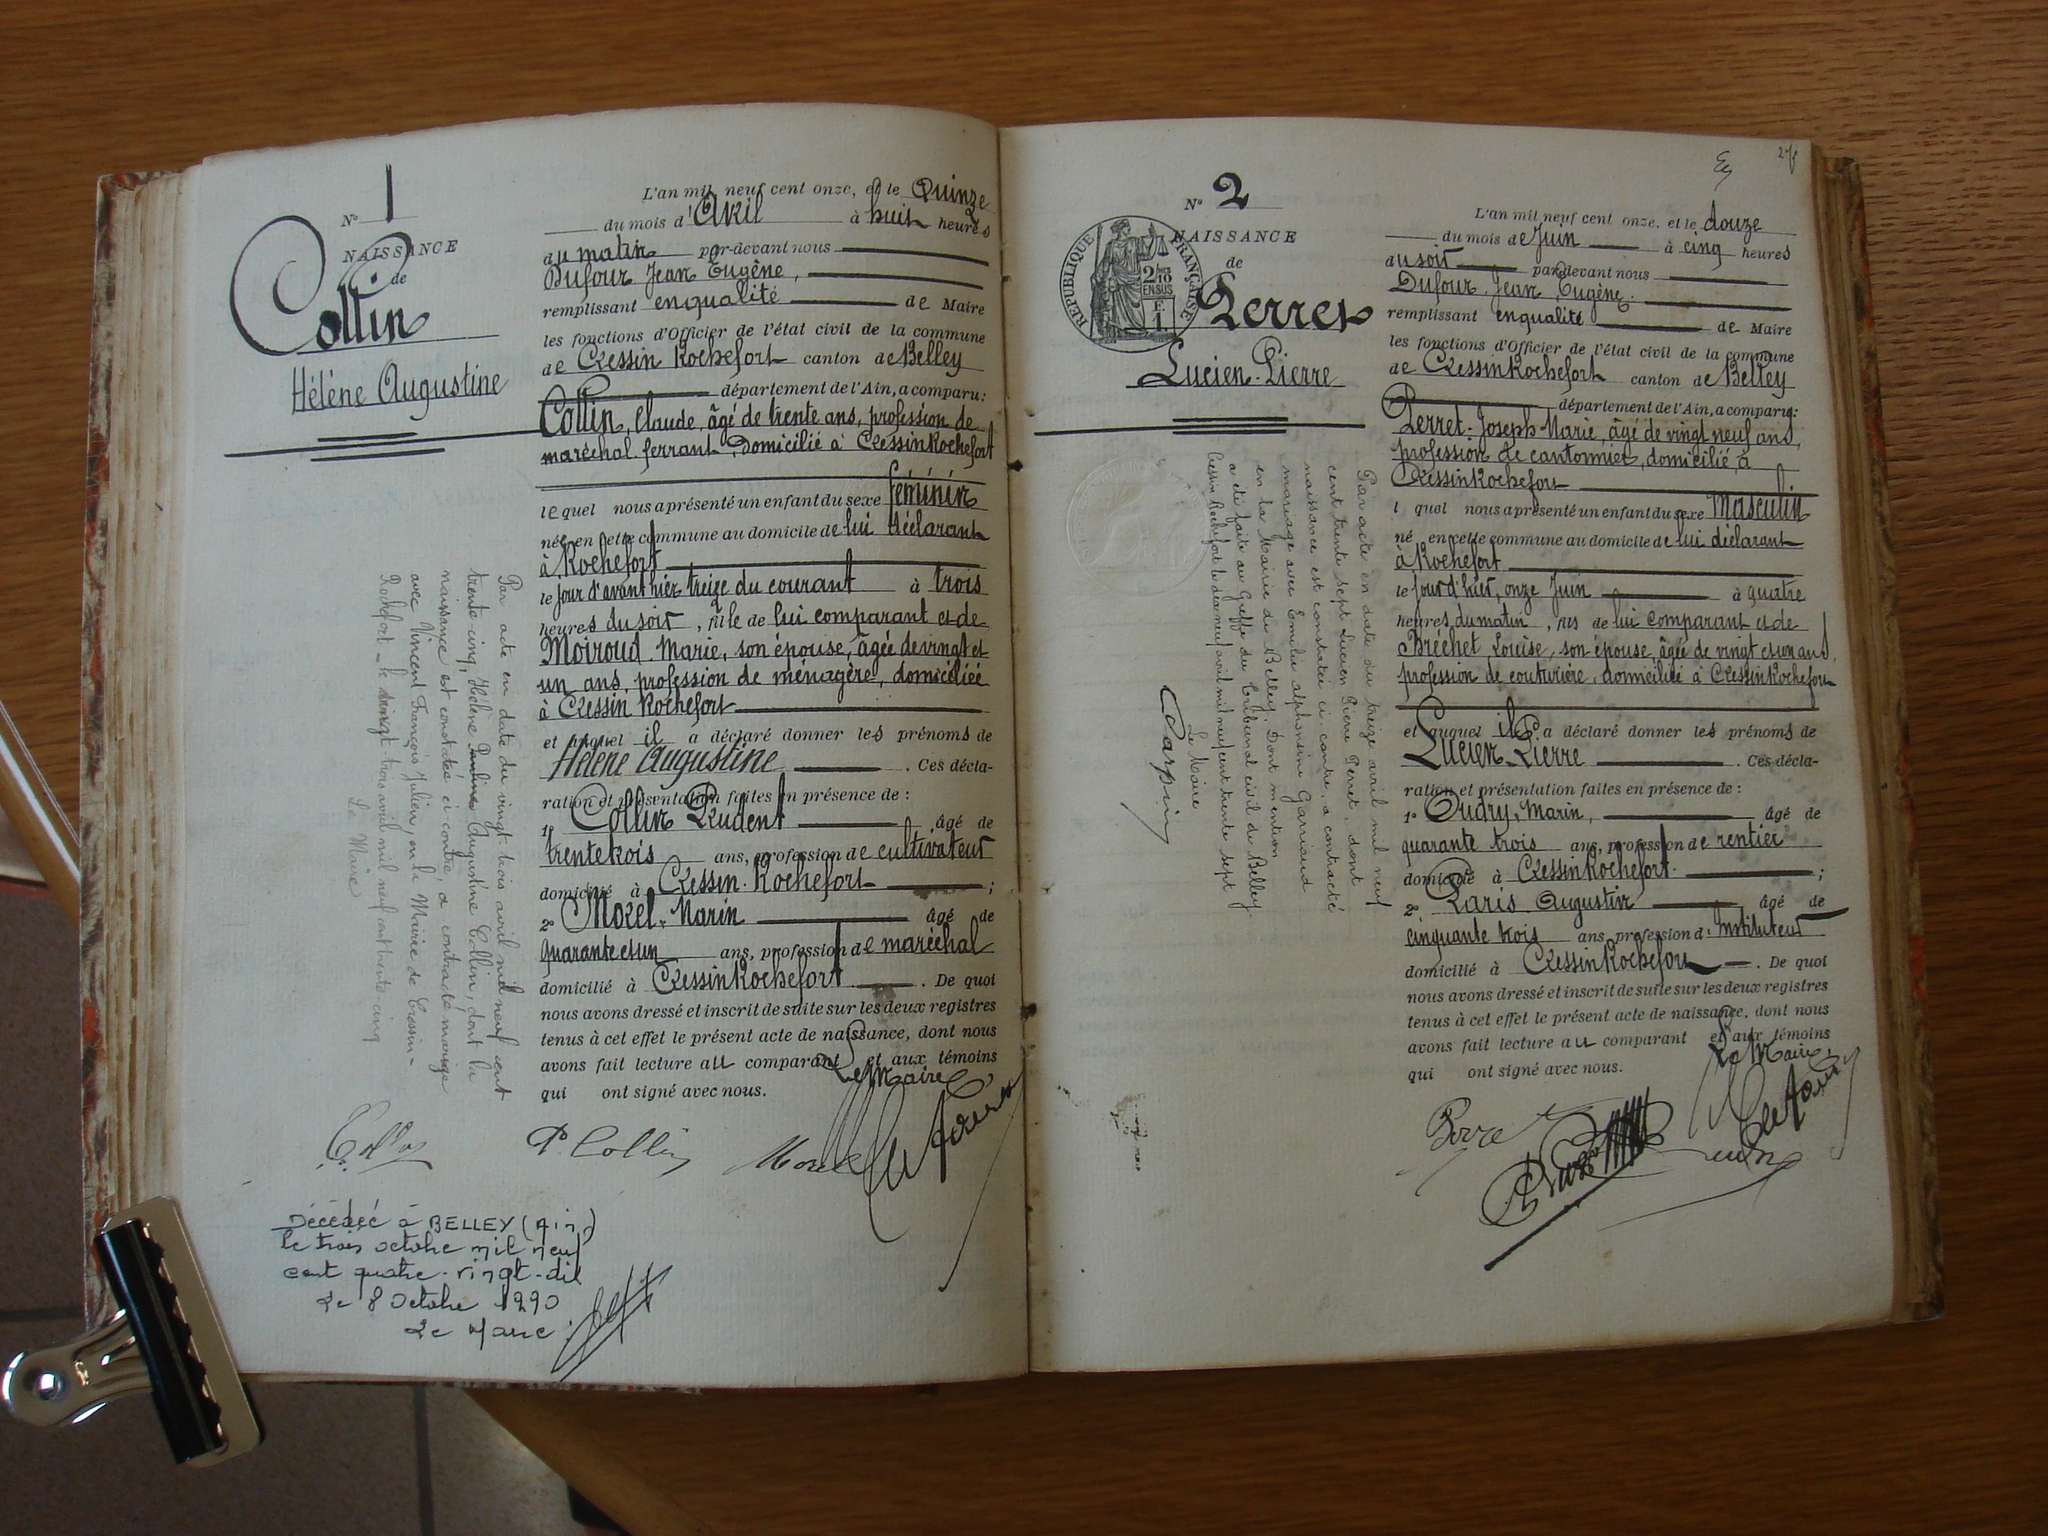 N° 1
NAISSANCE
de
Collin
Hélène Augustine
L'an mil neuf cent onze, et le Quinze
du mois d'Avril à huit heures
du matin par-devant nous
Dufour Jean Eugène,
remplissant en qualité de Maire
les fonctions d'Officier de l'état civil de la commune
de Cressin Rochefort canton de Belley
département de l'Ain, a comparu:
Collin, Claude, âgé de trente ans, profession de
maréchal ferrant, domicilié à Cressin Rochefort
lequel nous a présenté un enfant du sexe féminin
née en cette commune au domicile de lui déclarant
à Rochefort
le jour d'avant hier treize du courant à trois
heures du soir, fille de lui comparant et de
Moiroud Marie, son épouse, âgée de vingt et
un ans, profession de ménagère, domiciliée
à Cressin Rochefort
et auquel il a déclaré donner les prénoms de
Hélène Augustine. Ces décla-
ration et présentation faites en présence de :
1° Collin Prudent âgé de
trente trois ans, profession de cultivateur
domicilié à Cressin-Rochefort ;
2° Morel-Marin âgé de
quarante et un ans, profession de maréchal
domicilié à Cressin Rochefort. De quoi
nous avons dressé et inscrit de suite sur les deux registres
tenus à cet effet le présent acte de naissance, dont nous
avons fait lecture au comparant et aux témoins
qui ont signé avec nous.
Le Maire
P. Collin
Morel
Par acte en date du vingt-trois avril mil neuf cent
trente cinq, Hélène Pauline Augustine Collin, dont la
naissance est constatée ci-contre, a contracté mariage
avec Vincent François Julien, en la Mairie de Cressin-
Rochefort - le vingt trois avril mil neuf cent trente cinq
Le Maire
Décédée à BELLEY (Ain)
le trois octobre mil neuf
cent quatre-vingt-dix
Le 8 Octobre 1990
Le Maire :
2
N° 2
NAISSANCE
de
RÉPUBLIQUE FRANÇAISE
2/10
EN SUS
Perret
Lucien-Pierre
L'an mil neuf cent onze, et le douze
du mois de Juin à cinq heures
du soir par-devant nous
Dufour Jean Eugène
remplissant en qualité de Maire
les fonctions d'Officier de l'état civil de la commune
de Cressin Rochefort canton de Belley
département de l'Ain, a comparu:
Perret-Joseph Marie, âgé de vingt neuf ans,
profession de cantonnier, domicilié à
Cressin Rochefort
l quel nous a présenté un enfant du sexe Masculin
né en cette commune au domicile de lui déclarant
à Rochefort
le jour d'hier, onze Juin à quatre
heures du matin, fils de lui comparant et de
Bréchet Louise, son épouse, âgée de vingt et un ans,
profession de couturière, domiciliée à Cressin Rochefort
et auquel il a déclaré donner les prénoms de
Lucien-Pierre. Ces décla-
ration et présentation faites en présence de :
1° Oudry, Marin, âgé de
quarante trois ans, profession de rentier
domicilié à Cressin Rochefort ;
2° Paris Augustin âgé de
cinquante trois ans, profession d'Instituteur
domicilié à Cressin Rochefort. De quoi
nous avons dressé et inscrit de suite sur les deux registres
tenus à cet effet le présent acte de naissance, dont nous
avons fait lecture au comparant et aux témoins
qui ont signé avec nous.
Le Maire,
Perret
Par acte en date du treize avril mil neuf
cent trente sept Lucien Pierre Perret, dont
naissance est constatée ci-contre, a contracté
mariage avec Emilie Alphonsine Garriaud
en la Mairie de Belley. Dont mention
a été faite au Greffe du Tribunal civil de Belley
Cressin Rochefort le dix neuf avril mil neuf cent trente sept
Le Maire
Carpin